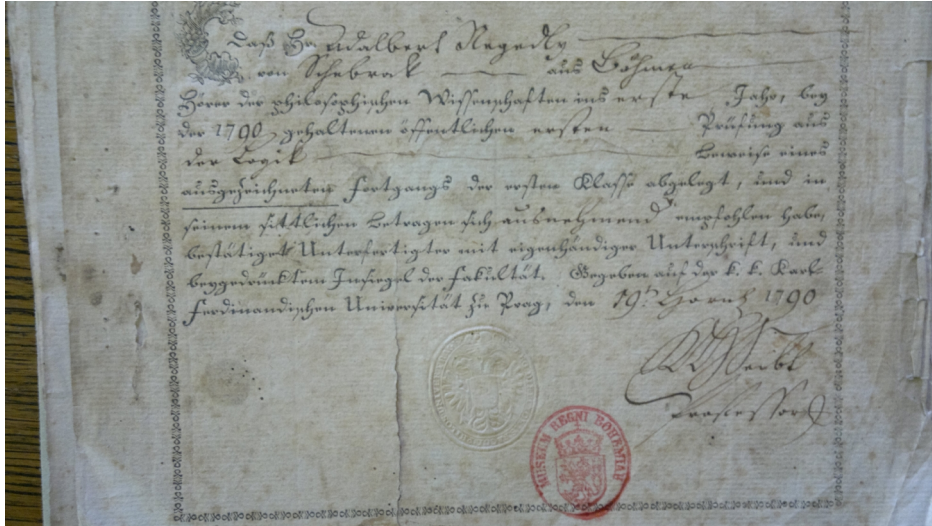 Daß Hr. Adalbert Negedly
von Schebrak aus Böhmen
Hörer der philosophischen Wissenschaften ins erste Jahr, bey
der 1790 gehaltenen öffentlichen ersten Prüfung aus
der Logik Beweise eines
ausgezeichneten Fortgangs der ersten Klasse abgelegt, und in
seinem sittlichen Betragen sich ausnehmend empfohlen habe,
bestätiget Unterfertigter mit eigenhändiger Unterschrift, und
beygedrücktem Insiegel der Fakultät. Gegeben auf der k. k. Karl-
Ferdinandischen Universität zu Prag, den 19t. Hornu 1790
Seibt
Professor
MUSEUM REGNI BOHEMIAE